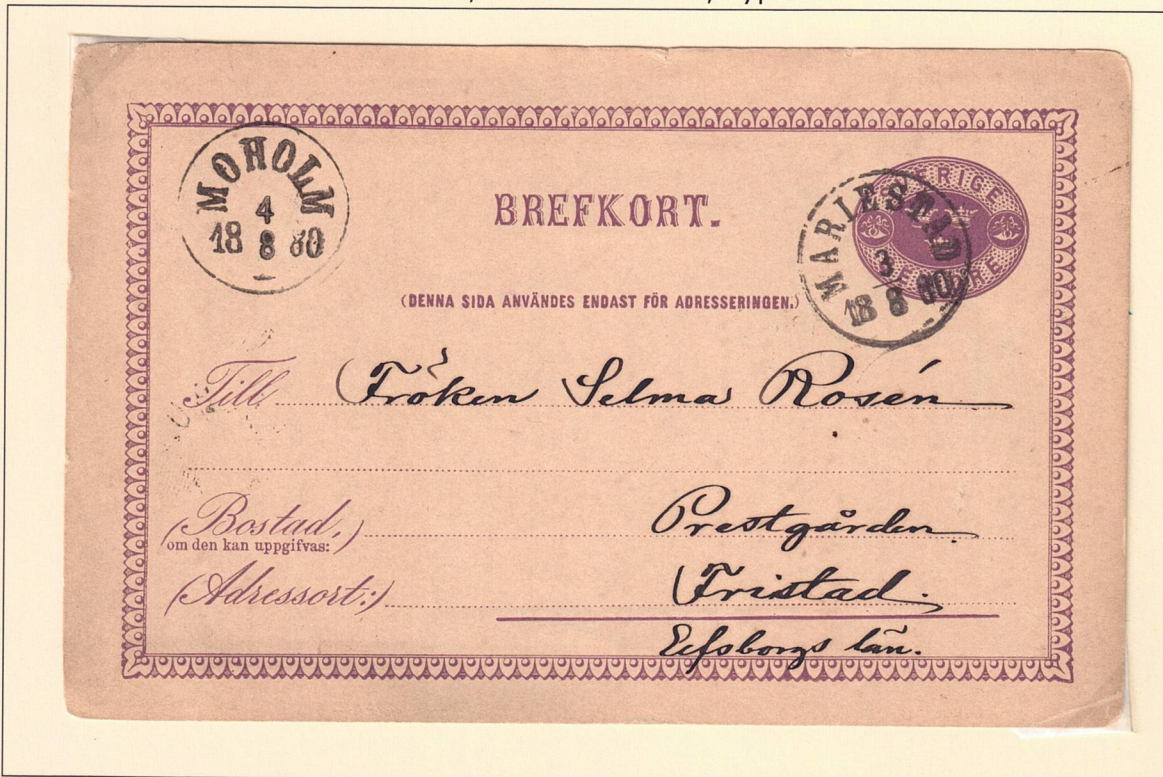 MOHOLM
4
18 8 80
BREFKORT.
SVERIGE
MARIESTAD
3
18 8 80
(DENNA SIDA ANVÄNDES ENDAST FÖR ADRESSERINGEN.)
Till Fröken Selma Rosén
(Bostad,) Prestgården.
om den kan uppgifvas:
(Adressort:) Fristad.
Elfsborgs län.